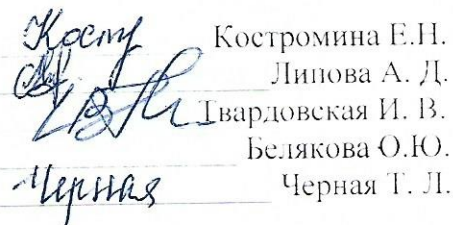 Костромина Е.Н.
Липова А. Д.
Твардовская И. В.
Белякова О.Ю.
Черная Черная Т. Л.